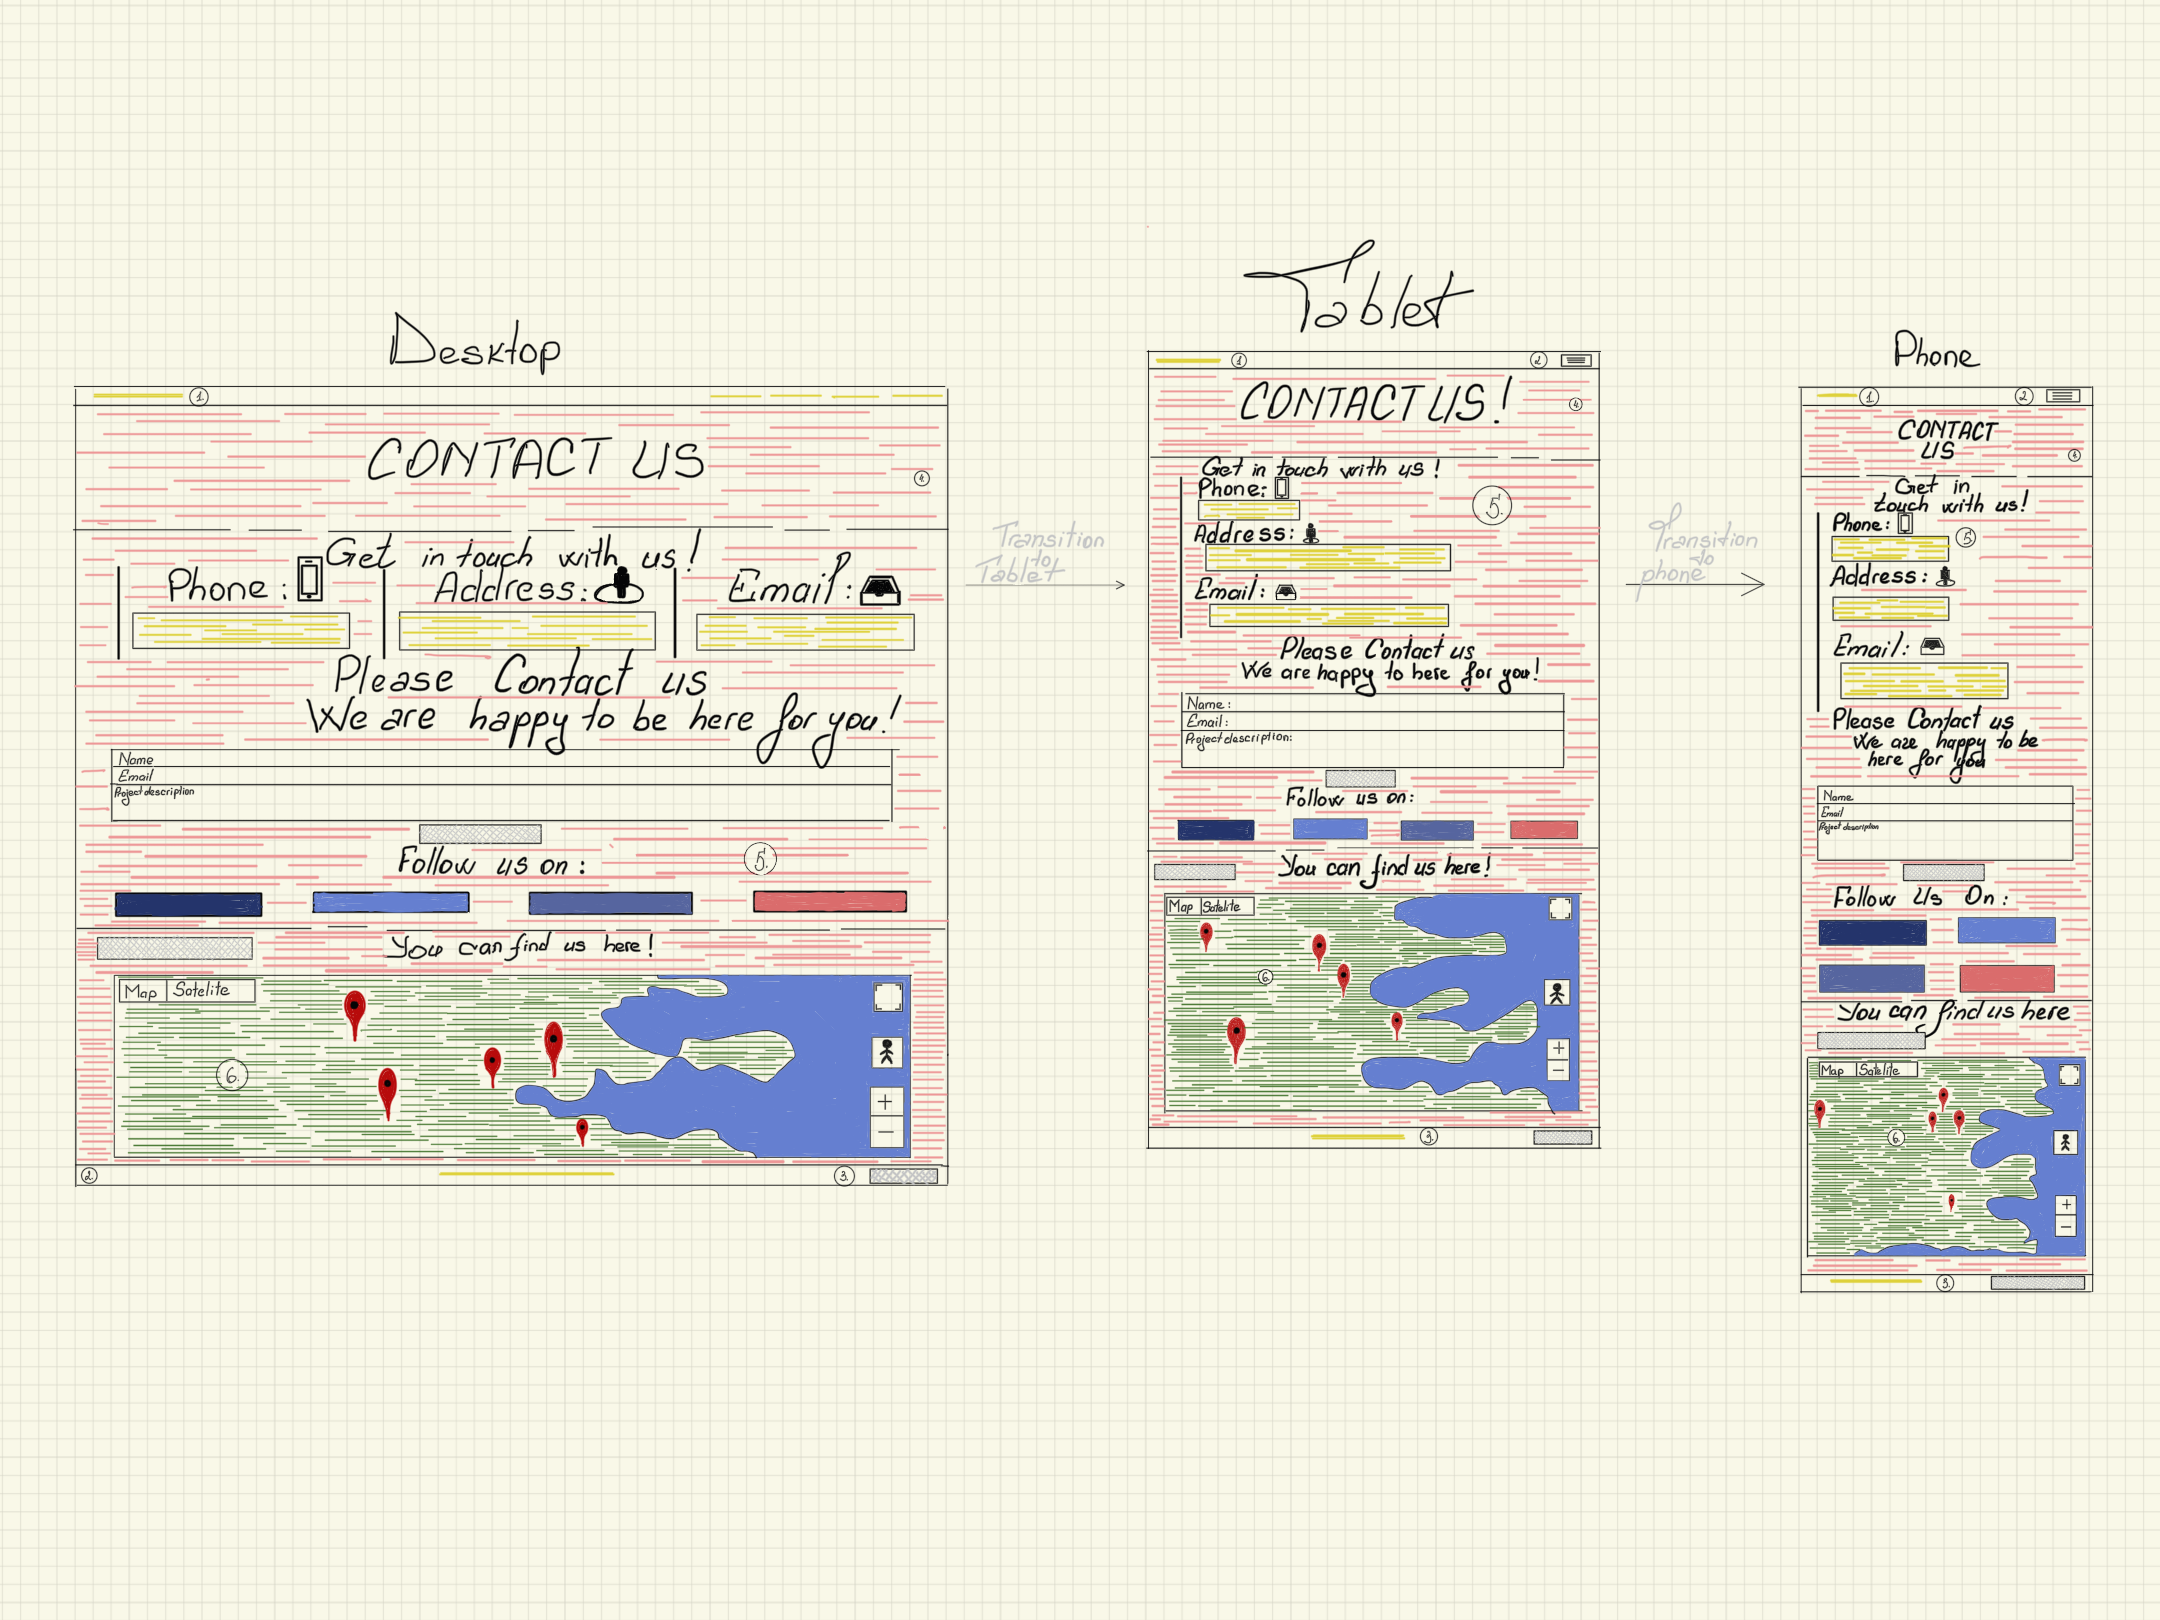 Desktop
1.
CONTACT US
4.
Get in touch with us!
Phone:
Address:
Email:
Please Contact us
We are happy to be here for you!
Name
Email
Project description
Follow us on:
5.
You can find us here!
Map Satelite
6.
+
−
2.
3.
Transition
to
Tablet
Tablet
1
2
CONTACT US!
4.
Get in touch with us!
Phone:
5.
Address:
Email:
Please Contact us
We are happy to here for you!
Name:
Email:
Project description:
Follow us on:
You can find us here!
Map Satelite
6.
+
−
3.
Transition
to
phone
Phone
1
2
CONTACT
US
4.
Get in
touch with us!
Phone:
5.
Address:
Email:
Please Contact us
We are happy to be
here for you
Name
Email
Project description
Follow Us On:
You can find us here
Map Satelite
6.
+
−
3.